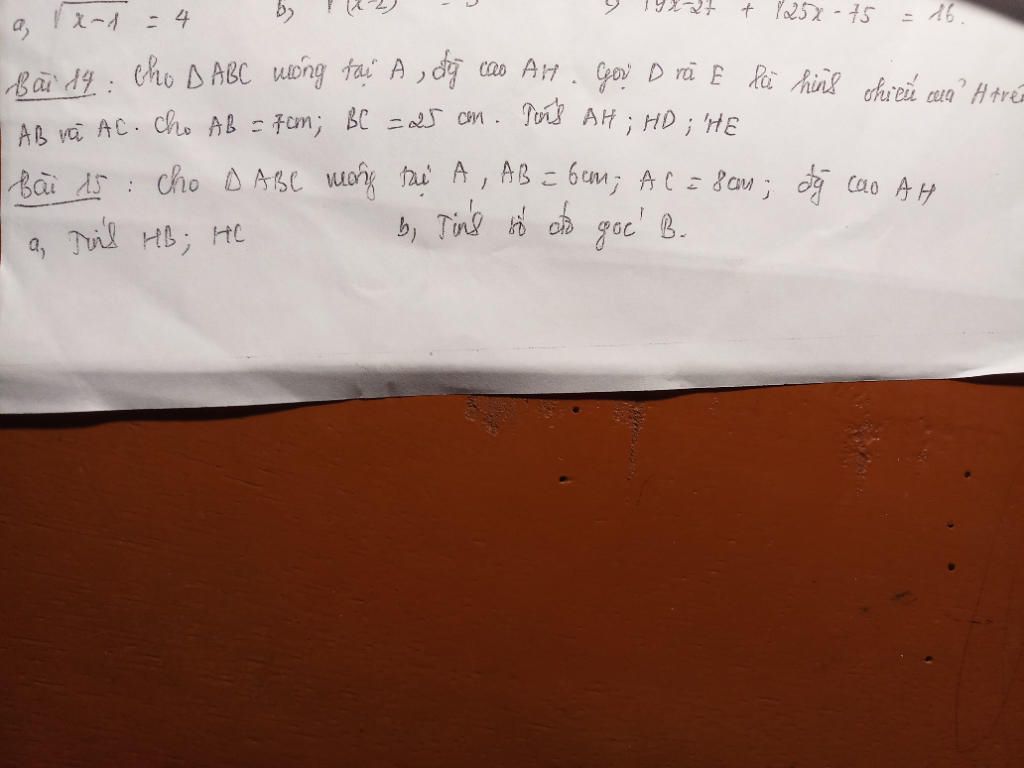 a, √x-1 = 4 b, √(x-2) c, √9x-27 + √25x-75 = 16.
Bài 14: Cho Δ ABC vuông tại A, đg cao AH. Gọi D và E là hình chiếu của H trên
AB và AC. Cho AB = 7cm; BC = 25 cm. Tính AH; HD; HE
Bài 15: Cho Δ ABC vuông tại A, AB = 6cm; AC = 8cm; đg cao AH
a, Tính HB; HC b, Tính số đo góc B.